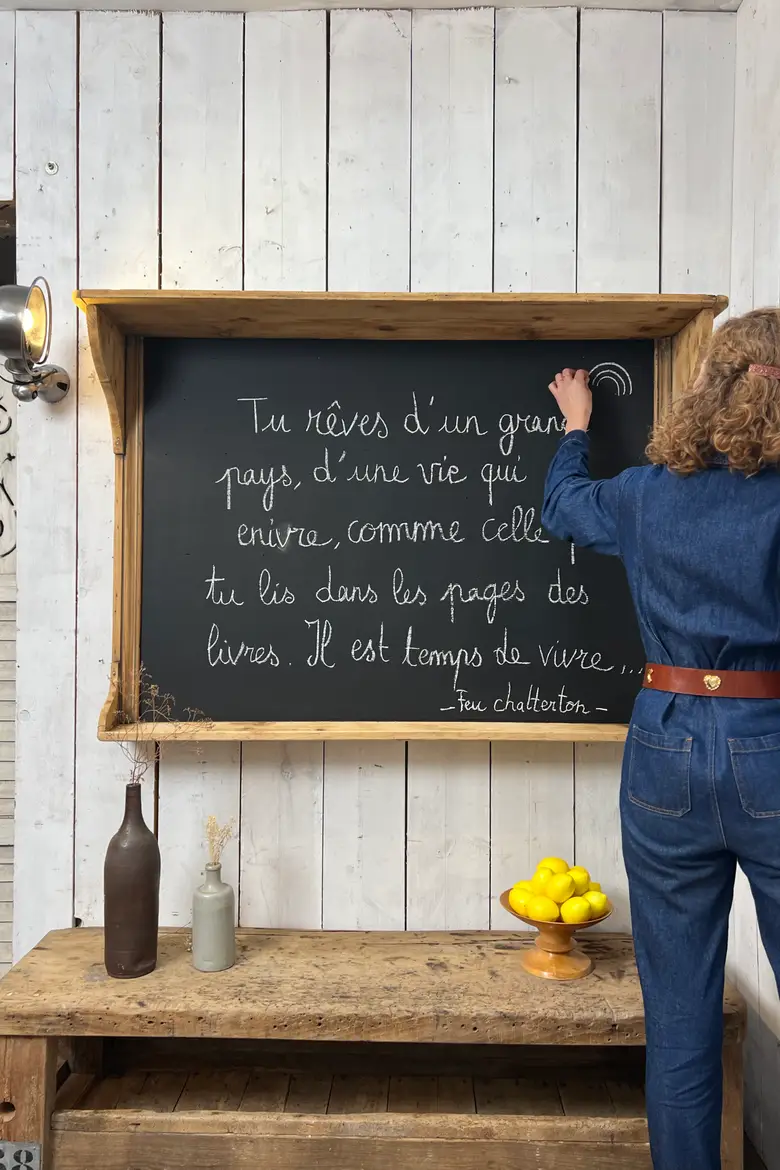 Tu rêves d'un grand
pays, d'une vie qui
enivre, comme celle
tu lis dans les pages des
livres. Il est temps de vivre,..
-Feu chatterton-
68